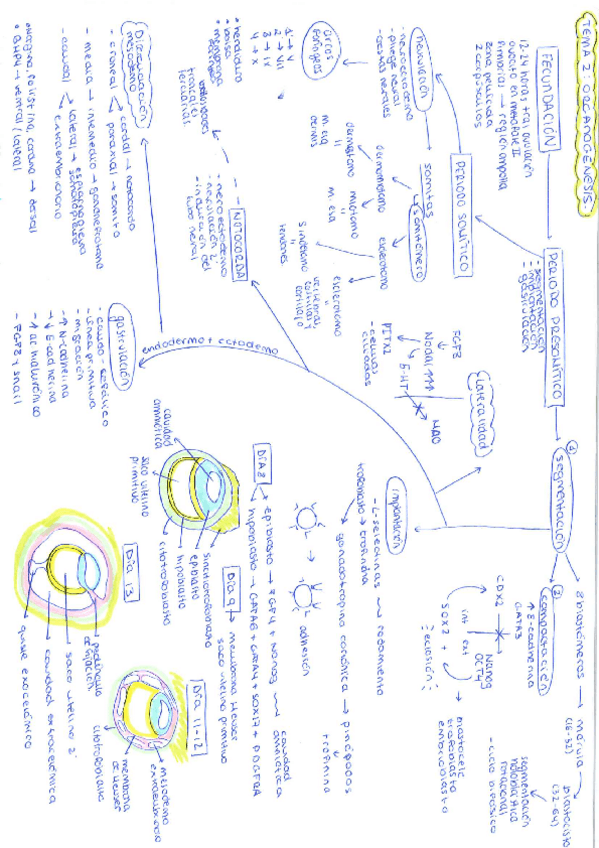 TEMA 2: ORGANOGÉNESIS.
FECUNDACIÓN
12-24 horas tras ovulación
ovocito en metafase II
fimbrias → región ampolla
zona pelúcida
2 corpúsculos
PERIODO PRESOMÍTICO
- segmentación
- implantación
- gastrulación
① segmentación
8 blastómeros → mórula → blastocisto
(16-32)
(32-64)
segmentación
holoblástica
rotacional
- ciclo bifásico
② compactación
↑ E-cadherina
GATA3
CDX2
Nanog
OCT4
int
ext
SOX2
¡eclosión!
blastocele
trofoblasto
embrioblasto
PERIODO SOMÍTICO
neurulación
- neuroectodermo
- pliegue neural
- crestas neurales
somitas
y somitómero
dermamiotomo
dermatomo
dermis
m. cia
miotomo
m. cia
esclerotomo
sindetomo
tendones
esclerotomo
vértebras,
costillas y
cartílago
arcos
faríngeos
1 → V
2 → VII
3 → IX
4 → X
• hendidura
• bolsa
• membrana
NOTOCORDA
- neuroectodermo
- neurulación 2ª
- inducción del
tubo neural
vellosidades
troncales
terciarias
lateralidad
FGF8
Nodal ↑↑↑
PITX2
5-HT
MAO
- células
ciliadas
implantación
- L-selectinas → rodamiento
adhesión
trofoblasto →
gonadotropina coriónica → pinópodos
trofinina
endodermo + ectodermo
gastrulación
- caudo-cefálico
- línea primitiva
- migración
↑ N-cadherina
↓ E-cadherina
↑ ác hialurónico
- FGF8 y snail
Diferenciación
mesodermo
- craneal
cordal → notocorda
paraxial → somita
- medio → intermedio → gononefrotomo
- caudal
lateral →
extraembrionario
• BMP4 → ventral/lateral
DÍA 8
epiblasto → FGF4 + Nanog
cavidad
amniótica
hipoblasto → GATA6 + GATA4 + SOX17 + PDGFRA
cavidad
amniótica
saco vitelino
primitivo
sincitiotrofoblasto
epiblasto
hipoblasto
citotrofoblasto
Día 9 → membrana Heuser
saco vitelino primitivo
Día 11-12
mesodermo
extraembrionario
membrana
de Heuser
citotrofoblasto
Día 13
pedículo
de fijación
saco vitelino 2º
cavidad extracelómica
quiste exocelómico